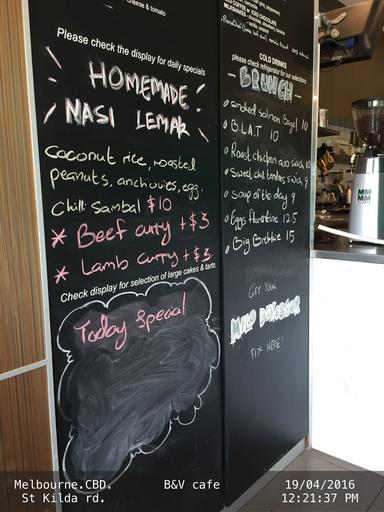 cheese & tomato
Please check the display for daily specials
HOMEMADE
NASI LEMAK
Coconut rice, roasted
peanuts, anchovies, egg.
Chilli Sambal $10
* Beef curry +$3
* Lamb curry +$3
Check display for selection of large cakes & tarts
Today Special
COLD DRINKS
please check refrigerator for our selections
BRUNCH
smoked salmon Bagel 10
B.L.A.T 10
Roast chicken avo swich 10
Sweet chilli tenders swich 9
soup of the day 9
Eggs florentine 12.5
Big Brekkie 15
GET YOUR
MILO DINOSAUR
FIX HERE!
Melbourne.CBD.
St Kilda rd.
B&V cafe
19/04/2016
12:21:37 PM